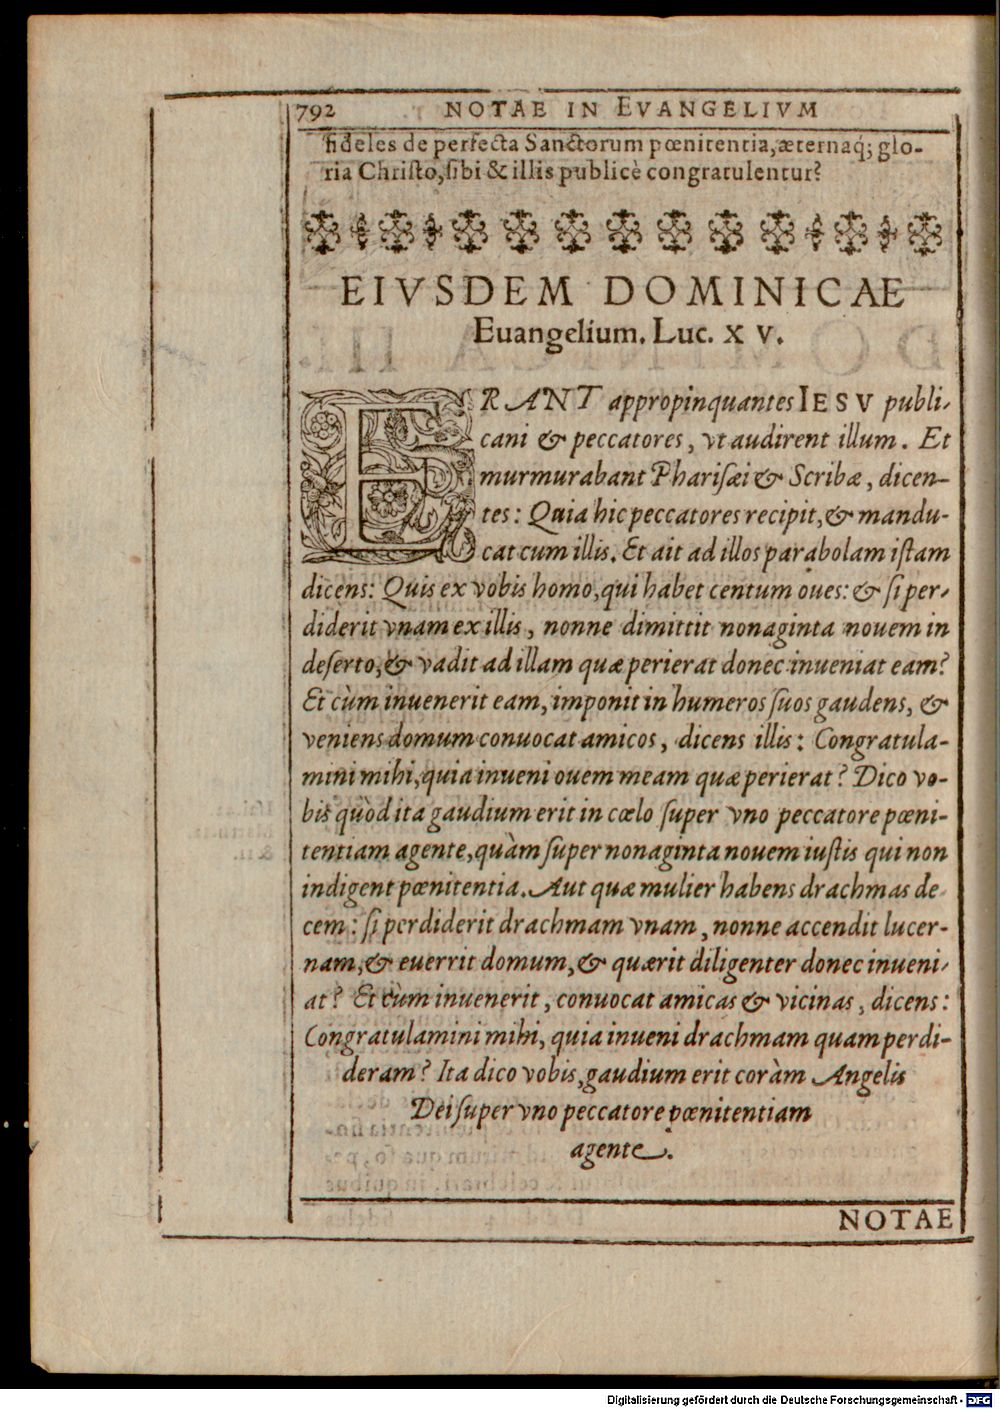 792 NOTAE IN EVANGELIVM
fideles de perfecta Sanctorum pœnitentia, æternaq́; glo-
ria Christo, sibi & illis publicè congratulentur?
EIVSDEM DOMINICAE
Euangelium. Luc. X V.
ERANT appropinquantes IESV publi-
cani & peccatores, vt audirent illum. Et
murmurabant Pharisæi & Scribæ, dicen-
tes: Quia hic peccatores recipit, & mandu-
cat cum illis. Et ait ad illos parabolam istam
dicens: Quis ex vobis homo, qui habet centum oues: & si per-
diderit vnam ex illis, nonne dimittit nonaginta nouem in
deserto, & vadit ad illam quæ perierat donec inueniat eam?
Et cùm inuenerit eam, imponit in humeros suos gaudens, &
veniens domum conuocat amicos, dicens illis: Congratula-
mini mihi, quia inueni ouem meam quæ perierat? Dico vo-
bis quòd ita gaudium erit in cœlo super vno peccatore pœni-
tentiam agente, quàm super nonaginta nouem iustis qui non
indigent pœnitentia. Aut quæ mulier habens drachmas de
cem: si perdiderit drachmam vnam, nonne accendit lucer-
nam, & euerrit domum, & quærit diligenter donec inueni-
at? Et cùm inuenerit, conuocat amicas & vicinas, dicens:
Congratulamini mihi, quia inueni drachmam quam perdi-
deram? Ita dico vobis, gaudium erit coràm Angelis
Dei super vno peccatore pœnitentiam
agente.
NOTAE
Digitalisierung gefördert durch die Deutsche Forschungsgemeinschaft - DFG